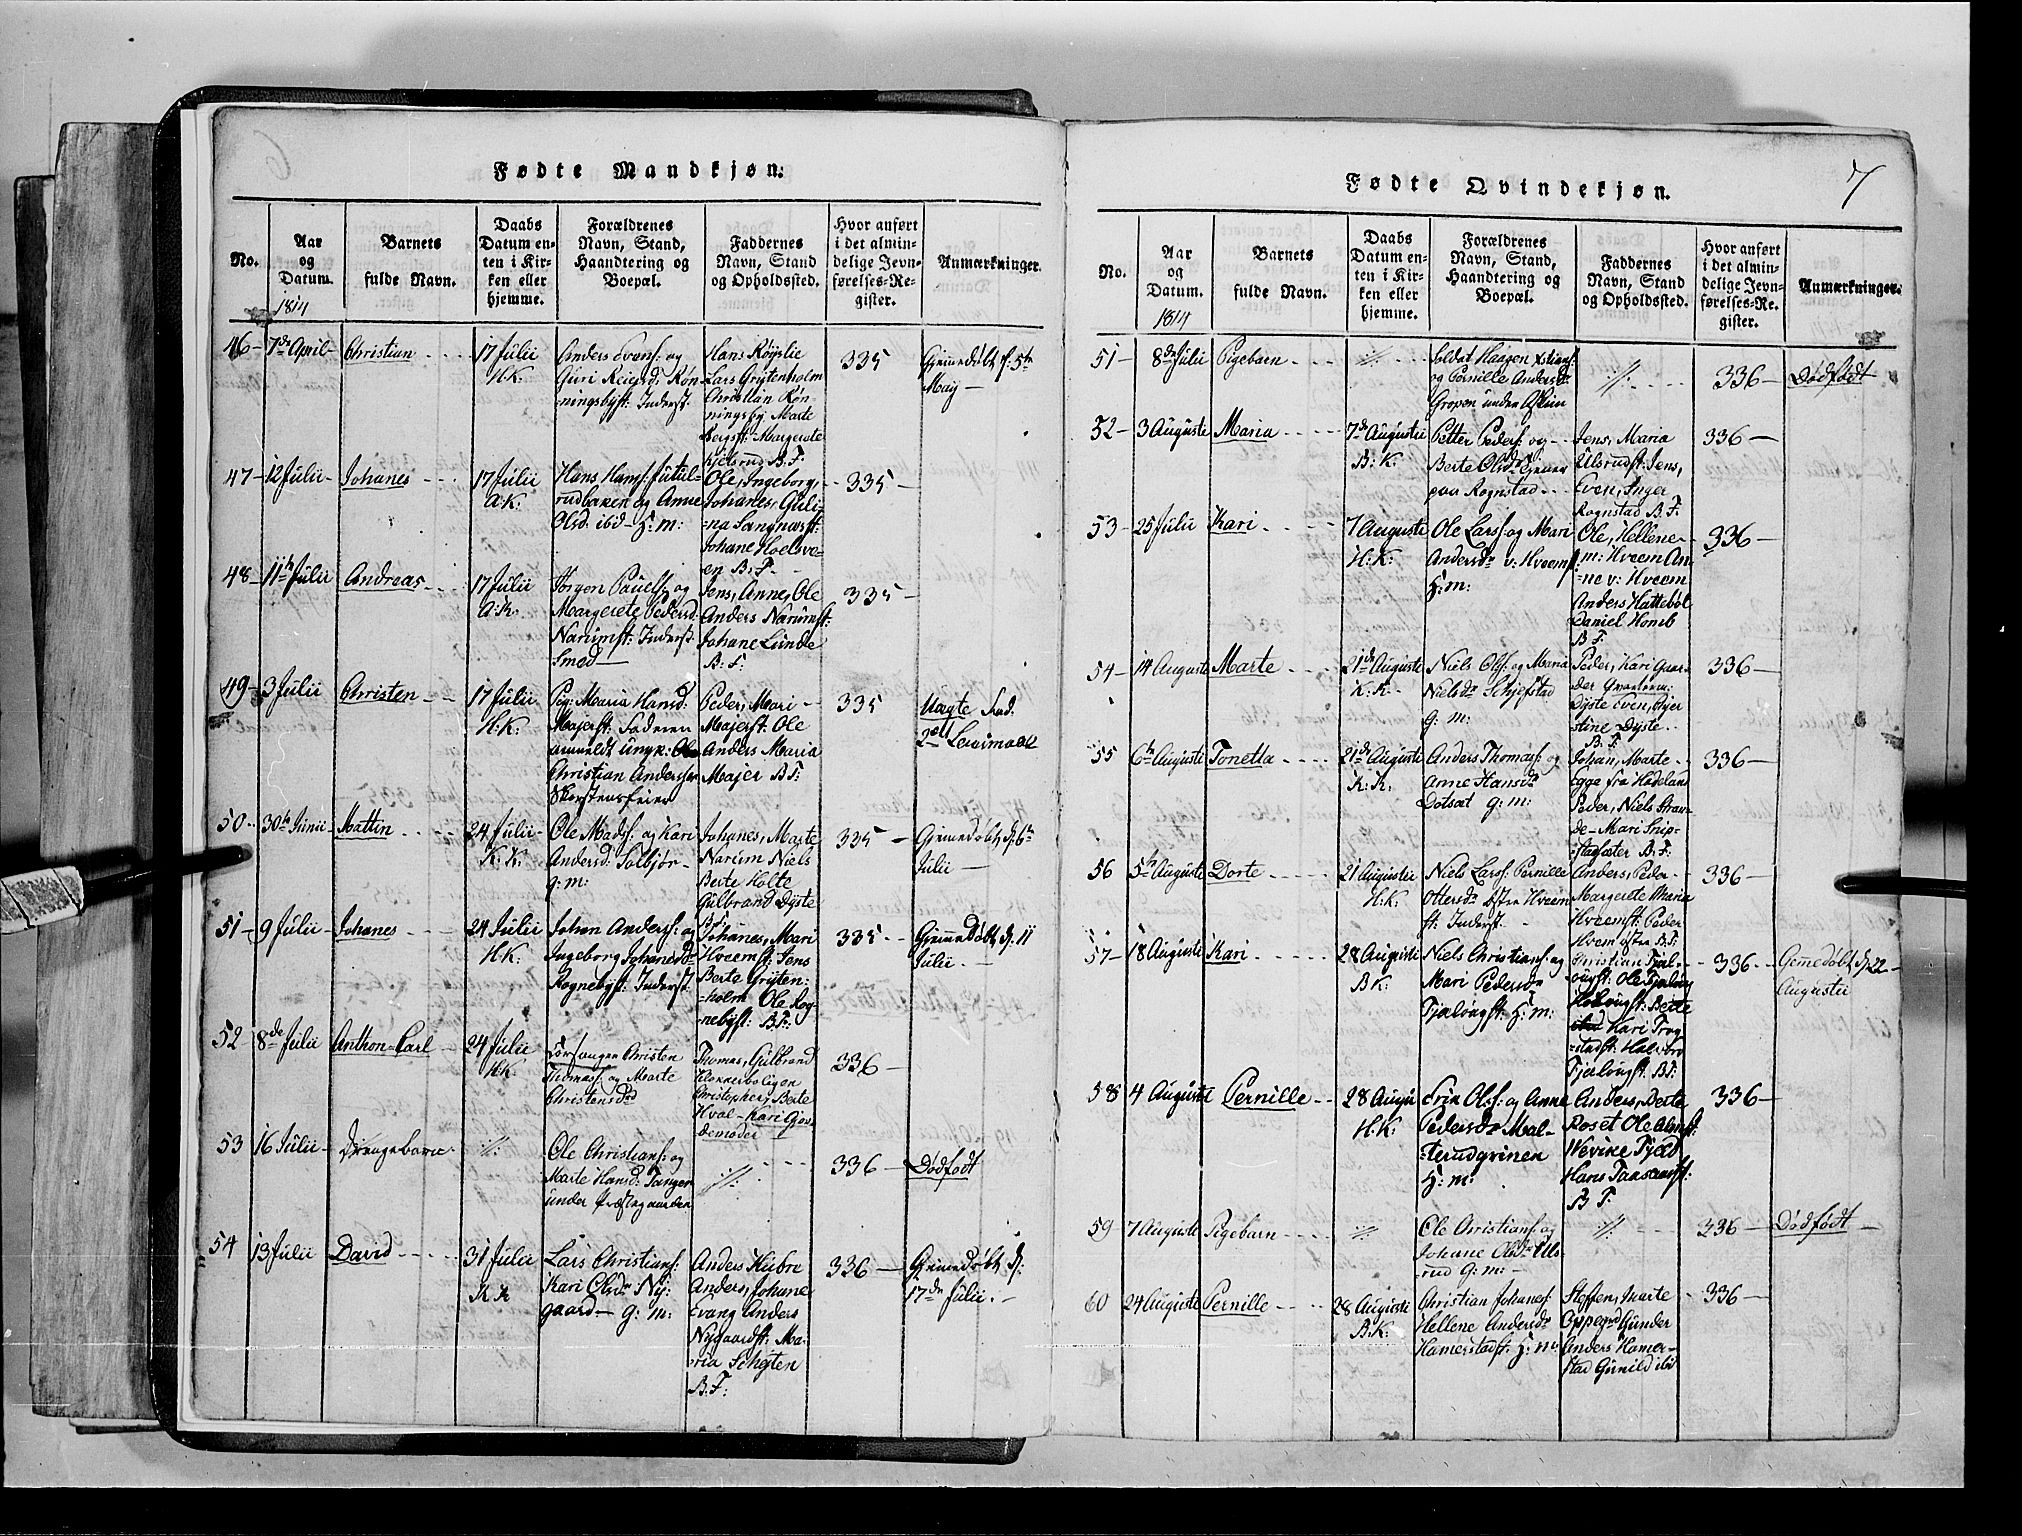 Fødte Mandkjøn.
No.
Aar og Datum.
1814
Barnets fulde Navn.
Daabs Datum enten i Kirken eller hjemme.
Forældrenes Navn, Stand, Haandtering og Boepæl.
Faddernes Navn, Stand og Opholdssted.
Hvor anført i det almindelige Jevnførelses-Register.
Anmærkninger.
46 - 7de April - Christian
17 Julii
H.K.
Anders Evens: og
Guri
ningsbyst: Inderst.
Hans Røyslie
Lars Grytenholm
Christian Røn-
ningsby Marte
Margerete
B.F.
335
Giemedøbt
5te
Maij -
47 - 12 Julii - Johanes
17 Julii
A.K.
Hans Hans:
og Anne
Olsd: ibid H: m:
Ole, Ingeborg,
Johanes, Guli-
na
Johane Hoelsve-
en B.F.
335 -
48 - 11te Julii Andreas
17 Julii
A:K.
Jørgen og
Margerete Pedersd:
Narumst: Inderst
Smed
Jens, Anne, Ole
Anders Narumst:
Johane Lunde
B.F.
335 -
49 - 3 Julii Christen
17 Julii
H.K.
Pig: Maria Hansd
Majerst: Faderen
anmeldt Ungk: Ole
Christian Andersen
Skorstensfeier
Peder, Mari
Majerst Ole
Anders Maria
Majer B F:
335
Uægte
2det
50 - 30te Junii - Mattin
24 Julii
K. K.
Ole Mads: og Kari
Andersd: Solbjør-
g: m:
Johanes, Marte
Narum Niels
Berte Holte
Gulbrand Dyste
B F:
335 -
Giemedøbt d: 6te
Julii -
51 - 9 Julii - Johanes
24 Julii
H.K.
Johan Anders: og
Ingeborg Johanesd
Rognebyst: Inderst
Johanes, Mari
Hveemst: Jens
Berte Grÿten-
holm Ole Rog-
nebyst: B F:
335 -
Giemedøbt d: 11
Julii -
52 8de Julii Anthon Carl
24 Julii
H.K.
Christen
Thomas: og Marte
Christensd
Thomas, Gulbrand
Klokkerboligen
Christopher, Berte
Hval - Kari Gjor-
demoder
336 -
53 16 Julii - Drengebarn
Ole Christians: og
Marte Hansd: Tangen
under Præstegaarden
336 -
Dødfødt
54 13 Julii David
31 Julii
K K
Lars Christians:
Kari Olsdr Nÿ-
gaard - g: m:
Anders
Anders, Johane
Evang Anders
Nygaardst: Ma-
ria
B.F:
336 -
Giemedøbt d:
17de Julii -
Fødte Qvindekjøn.
7
No.
Aar og Datum.
1814
Barnets fulde Navn.
Daabs Datum enten i Kirken eller hjemme.
Forældrenes Navn, Stand, Haandtering og Boepæl.
Faddernes Navn, Stand og Opholdssted.
Hvor anført i det almindelige Jevnførelses-Register.
Anmærkninger.
51 - 8de Julii Pigebarn
Soldat Haagen
og Pernille Andersd
under
336 -
Dødfødt
52 - 3 Augusti Maria
7de Augusti
B: K:
Petter Peders: og
Berte Olsdr
paa Rognstad
Jens, Maria
Ulsrudst: Jens,
Even, Inger
Rognstad B F:
336 -
53 - 25 Julii Kari
7 Augusti
H: K:
Ole Lars: og Mari
Andersdr v: Hveem
H: m:
Ole, Hellene
m: Hveem An-
ne v: Hveem
Anders Hattebøl
Daniel
B F:
336 -
54 - 14 Augusti Marte
21de Augusti
K: K.
Niels Ols: og Maria
Nielsdr Schjefstad
g: m:
Peder, Kari
Dyste Even, Kjer
stine Dyste
B. F.
336 -
55 6te Augusti Tonetta
21de Augusti
K: K.
Anders Thomas: og
Anne Hansdr
g: m:
Johan, Marte
Egge fra Hadeland
Peder, Niels
Mari Snip-
B. F:
336 -
56 5te Augusti Dorte
21 Augusti
H. K.
Niels Lars: Pernille
Ottersdr Østre Hveem
st: Inderst.
Anders, Peder
Margerete Maria
Hveemst: Peder
Hvem østre B F:
336 -
57 - 18 Augusti Kari
28 Augusti
B K:
Niels Christians: og
Mari Pedersdr
H: m:
Christian
Ole
Berte
Kari
B F:
336 -
Giemedøbt d 22
Augusti
58 4 Augusti Pernille
28 Augusti
H. K:
Erik Ols: og Anne
Pedersdr Mal-
terudgrinen
H: m:
Anders, Berte
Roset Ole
B F.
336 -
59 7 Augusti Pigebarn
Ole Christians: og
Johane Olsdr Uls-
rud g: m: -
336 -
Dødfødt
60 24 Augusti Pernille
28 Augusti
B. K:
Christian Johanes:
Hellene Andersdr
Hamerstadst: H: m:
Steffen, Marte
Gunder
Anders Hamer-
stad Gunild ibd
336 -